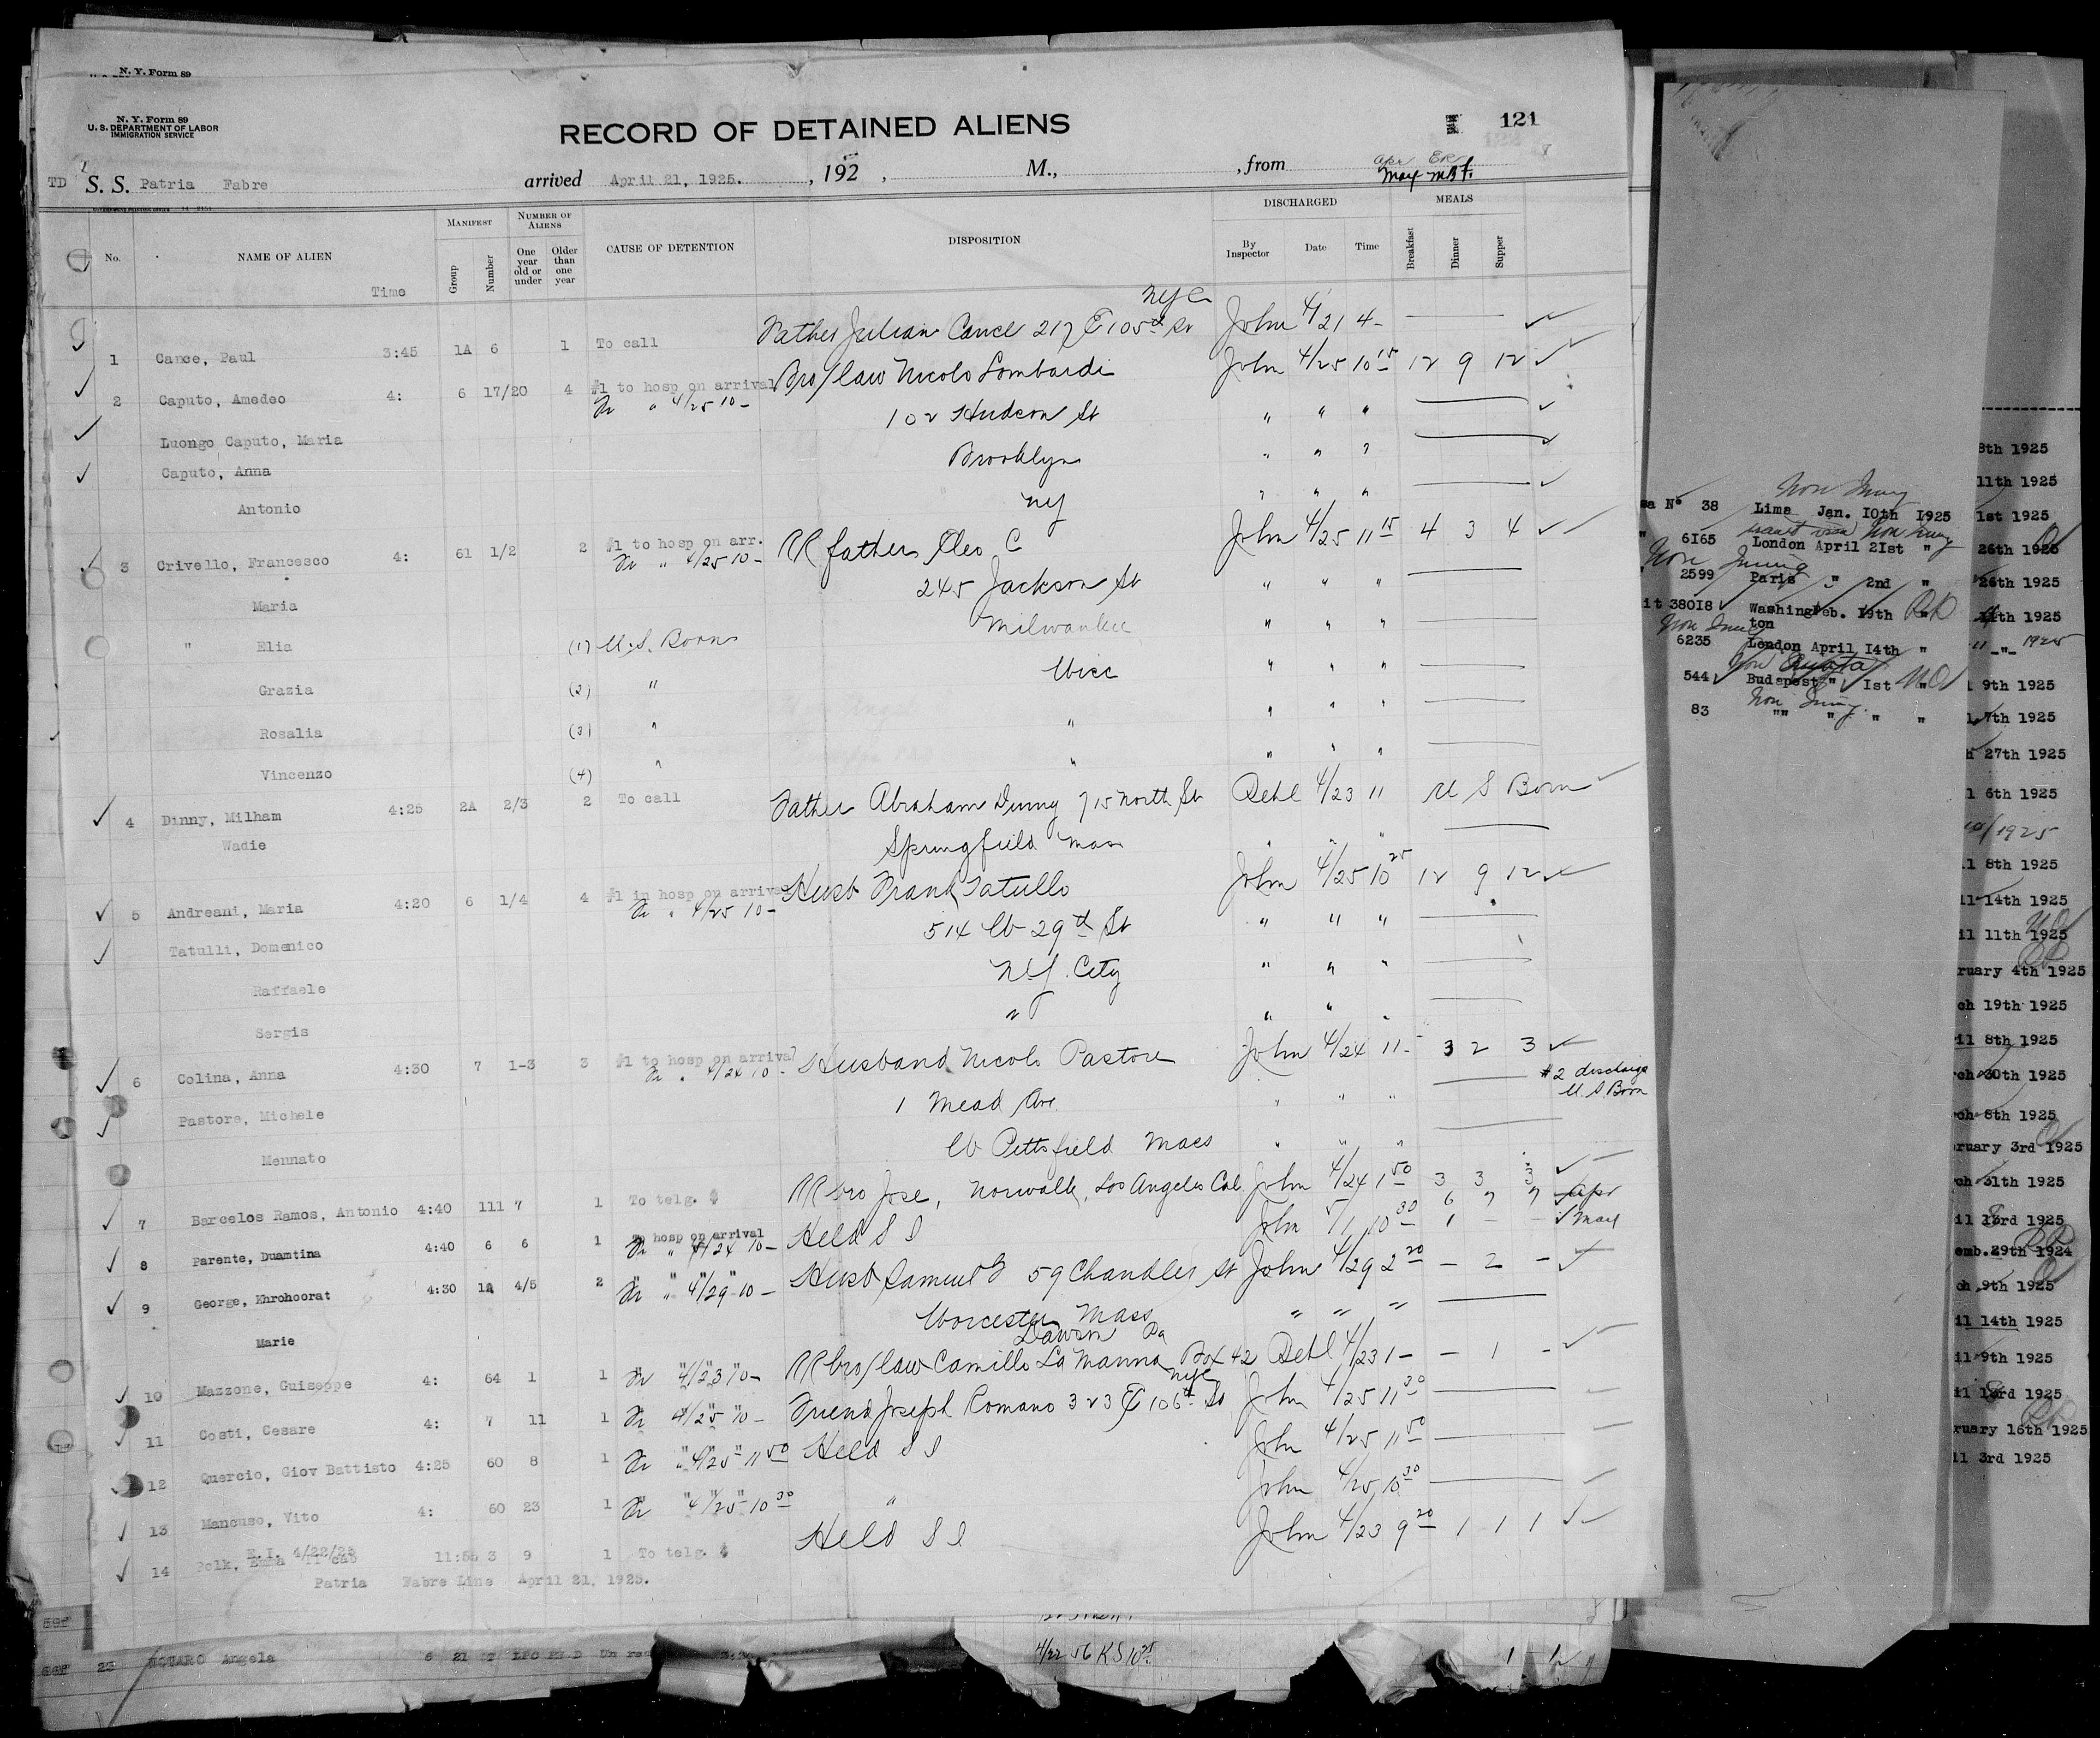 N. Y. Form 89
N. Y. Form 89
U. S. DEPARTMENT OF LABOR
IMMIGRATION SERVICE
RECORD OF DETAINED ALIENS
121
TD S. S. Patria Fabre arrived April 21, 1925. , 192 , M., , from
Apr ER
May
No. NAME OF ALIEN Time MANIFEST Group Number NUMBER OF ALIENS One year old or under Older than one year CAUSE OF DETENTION DISPOSITION DISCHARGED By Inspector Date Time MEALS Breakfast Dinner Supper
NYC
1 Cance, Paul 3:45 1A 6 1 To call Father Julian Cance 217 E 105th St John 4/21 4-
2 Caputo, Amedeo 4: 6 17/20 4 #1 to hosp on arrival Bro/law Nicolo Lombardi John 4/25 10 15 12 9 12
" 4/25 10-
Luongo Caputo, Maria 102 Hudson St " " "
Caputo, Anna Brooklyn " " "
Antonio NY " " "
3 Crivello, Francesco 4: 61 1/2 2 #1 to hosp on arr. RR father Cleo C John 4/25 11 15 4 3 4
" 4/25 10-
Maria 245 Jackson St " " "
" Elia (1) U.S. Born Milwaukee " " "
Grazia (2) " Wisc " " "
Rosalia (3) " " " " "
Vincenzo (4) " " " " "
4 Dinny, Milham 4:25 2A 2/3 2 To call Father Abraham Dinny 715 North St Behl 4/23 11 U S Born
Wadie Springfield Mass " " "
5 Andreani, Maria 4:20 6 1/4 4 #1 in hosp on arrival Husb Frank Tatullo John 4/25 10 25 12 9 12
" 4/25 10-
Tatulli, Domenico 514 W 29th St " " "
Raffaele N.Y. City " " "
Sergis " " " "
6 Colina, Anna 4:30 7 1-3 3 #1 to hosp on arrival Husband Nicolo Pastore John 4/24 11- 3 2 3
" 4/24 10-
#2 discharge
U. S Born
Pastore, Michele 1 Mead Ave " " "
Mennato W Pittsfield Mass " " "
7 Barcelos Ramos, Antonio 4:40 111 7 1 To telg. $ RR bro Jose, Norwalk, Los Angeles Cal John 4/24 1 50 3 3 3
8 Parente, Duamtina 4:40 6 6 1 To hosp on arrival Held S I John 5/1 10 30 6 7 7 Apr
" 4/24 10- 1 - - May
9 George, Khrohoorat 4:30 1A 4/5 2 " " 4/29 10- Husb Samuel G 59 Chandler St John 4/29 2 20 - 2 -
Marie Worcester Mass " " "
Dawson Pa
10 Mazzone, Guiseppe 4: 64 1 1 " 4/23 10- RR bro/law Camillo La Manna Box 42 Behl 4/23 1- - 1 -
NYC
11 Costi, Cesare 4: 7 11 1 " 4/25 10- Friend Joseph Romano 323 E 106th St John 4/25 11 30
12 Quercio, Giov Battisto 4:25 60 8 1 " 4/25 11 50 Held S I John 4/25 11 50
13 Mancuso, Vito 4: 60 23 1 " 4/25 10 30 " John 4/25 10 30
E.I. 4/22/25
14 Polk, Emma 11 cab 11:55 3 9 1 To telg. $ Held S I John 4/23 9 20 1 1 1
Patria Fabre Line April 21, 1925.
23 NOTARO Angela 6 21
4/22 56 KS 10 25 1 1
Non Immg
No 38 Lima Jan. 10th 1925
6165 London April 21st "
Non Immig
2599 Paris " 2nd "
38018 Washington Feb. 19th "
Non Immig
6235 London April 14th "
Non Quota
544 Budapest " 1st "
Non Immig.
83 "" " " "
8th 1925
11th 1925
1st 1925
26th 1925
26th 1925
11th 1925
" -"- 1925
9th 1925
7th 1925
27th 1925
6th 1925
/1925
8th 1925
14th 1925
11th 1925
ruary 4th 1925
19th 1925
8th 1925
30th 1925
8th 1925
ruary 3rd 1925
31th 1925
13rd 1925
emb. 29th 1924
9th 1925
14th 1925
9th 1925
13rd 1925
ruary 16th 1925
3rd 1925